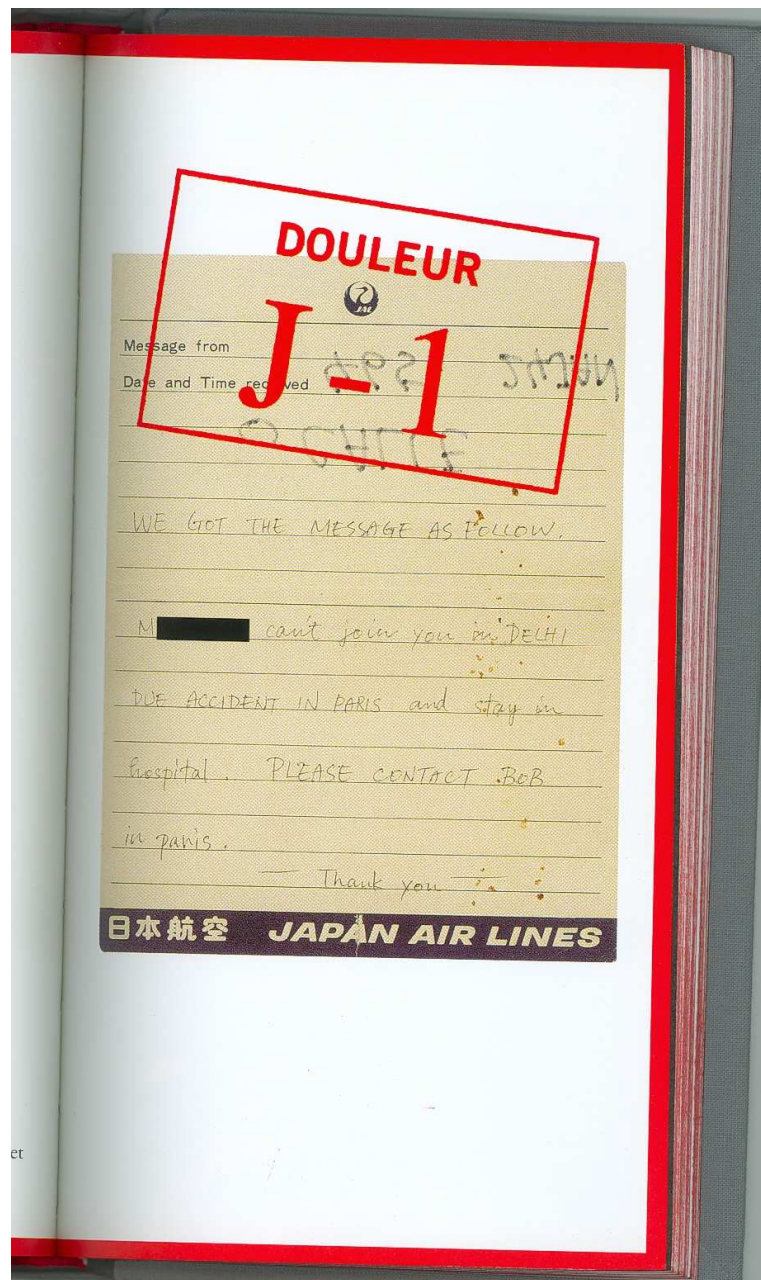 DOULEUR
JAL
J-1
Message from
Date and Time received 24JAN
S CALLE
WE GOT THE MESSAGE AS FOLLOW.
M can't join you in DELHI
DUE ACCIDENT IN PARIS and stay in
hospital. PLEASE CONTACT BOB
in paris.
— Thank you —
日本航空 JAPAN AIR LINES
et